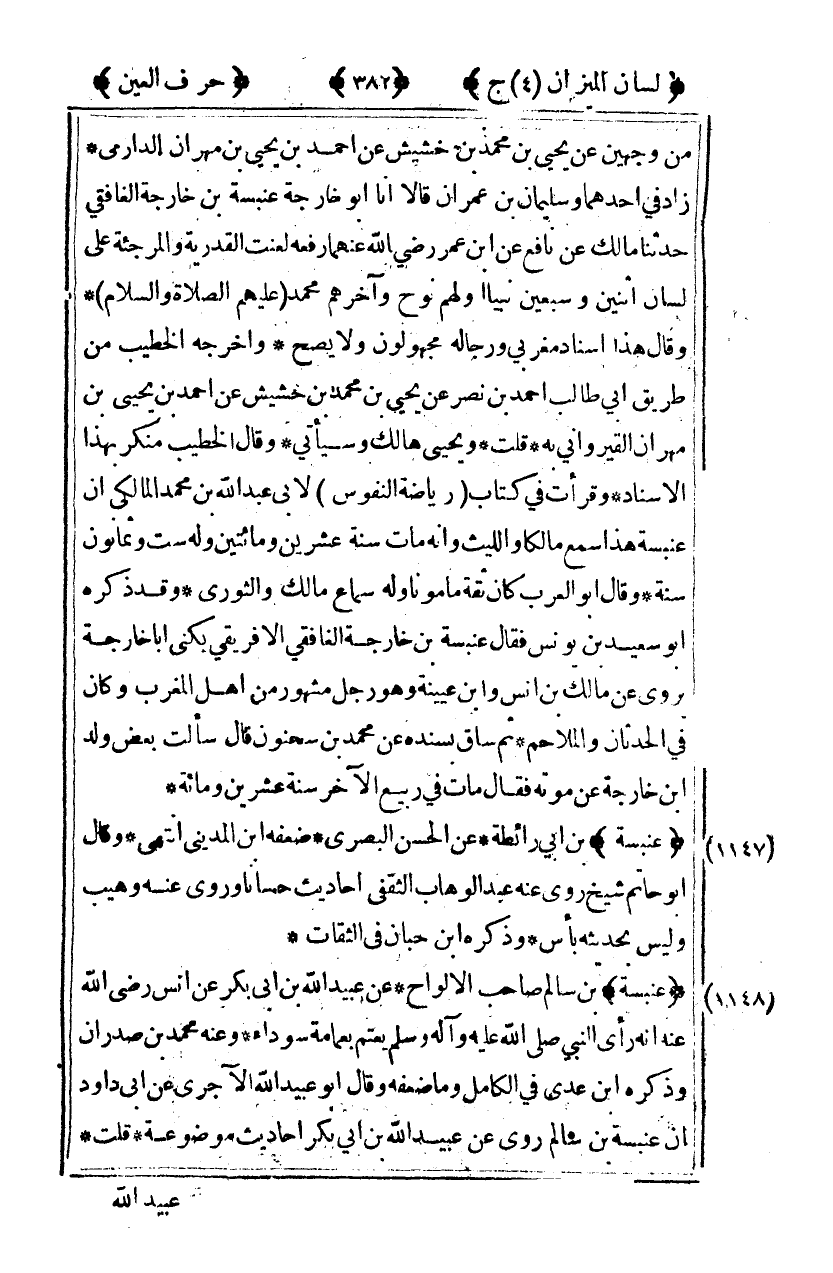 ﴿ لسان الميزان (٤) ج ﴾ ﴿٣٨٢﴾ ﴿ حرف العين ﴾
من وجهين عن يحيى بن محمد بن خشيش عن احمد بن يحيى بن مهران الدارمى *
زاد في احدهما وسليمان بن عمران قالا انا ابو خارجة عنبسة بن خارجة الغافقي
حدثنا مالك عن نافع عن ابن عمر رضي الله عنهما رفعه لعنت القدرية والمرجئة على
لسان اثنين و سبعين نبياا ولهم نوح وآخرهم محمد (عليهم الصلاة والسلام) *
وقال هذا اسناد مغربي ورجاله مجهولون ولا يصح * واخرجه الخطيب من
طريق ابي طالب احمد بن نصر عن يحيى بن محمد بن خشيش عن احمد بن يحيى بن
مهران القيرواني به * قلت * ويحيى هالك وسيأتي * وقال الخطيب منكر بهذا
الاسناد * وقرأت في كتاب ( رياضة النفوس ) لابى عبدالله بن محمد المالكي ان
عنبسة هذا سمع مالكا والليث وانه مات سنة عشرين ومائتين وله ست وثمانون
سنة * وقال ابو العرب كان ثقة مامونا وله سماع مالك والثورى * وقد ذكره
ابو سعيد بن يونس فقال عنبسة بن خارجة الغافقي الافريقي يكنى اباخارجة
يروى عن مالك بن انس وابن عيينة وهو رجل مشهور من اهل المغرب وكان
في الحدثان والملاحم * ثم ساق بسنده عن محمد بن سحنون قال سألت بعض ولد
ابن خارجة عن موته فقال مات في ربيع الآخر سنة عشرين ومائة *
(١١٤٧) ﴿ عنبسة ﴾ بن ابي رائطة * عن الحسن البصرى * ضعفه ابن المدينى انتهى * وقال
ابو حاتم شيخ روى عنه عبد الوهاب الثقفى احاديث حسانا وروى عنه وهيب
وليس بحديثه بأس * وذكره ابن حبان فى الثقات *
(١١٤٨) ﴿عنبسة﴾ بن سالم صاحب الالواح * عن عبيد الله بن ابى بكر عن انس رضى الله
عنه انه رأى النبي صلى الله عليه وآله وسلم يعتم بعمامة سوداء * وعنه محمد بن صدران
وذكره ابن عدى في الكامل وما ضعفه وقال ابو عبيد الله الآجرى عن ابى داود
ان عنبسة بن سالم روى عن عبيد الله بن ابي بكر احاديث موضوعة * قلت *
عبيد الله